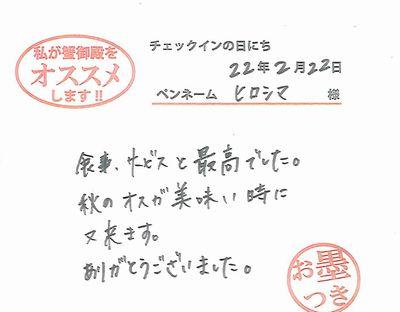 私が蟹御殿を
オススメ
します!!
チェックインの日にち
22年2月22日
ペンネーム ヒロシマ 様
食事、サービスと最高でした。
秋のオスが美味い時に
又来ます。
ありがとうございました。
お墨
つき